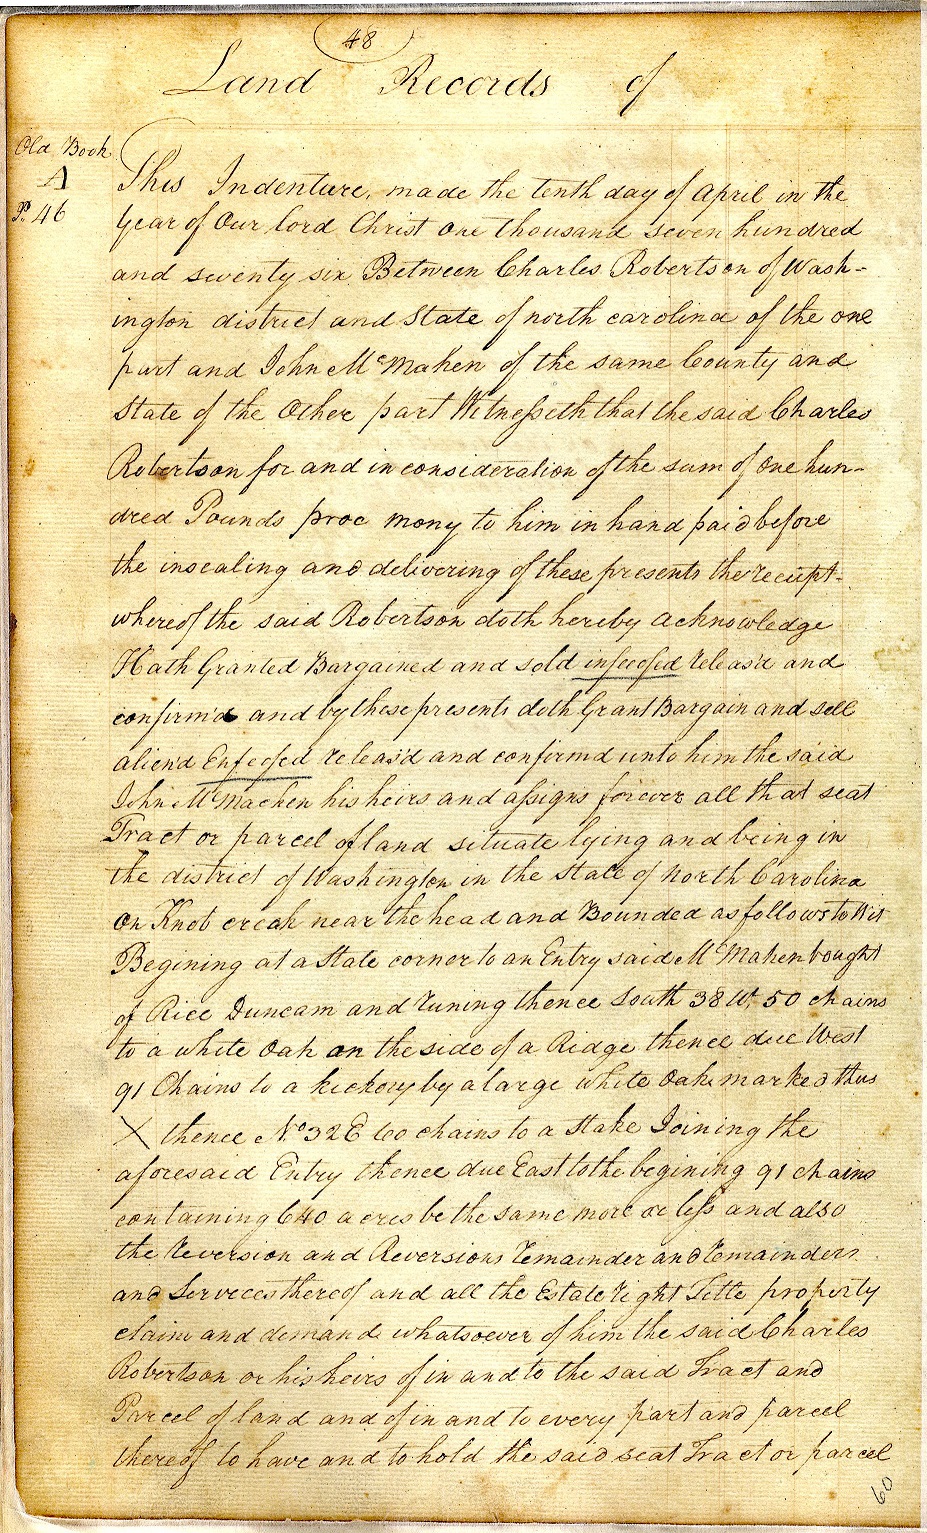 48
Land Records of
Old Book
A
P. 46
This Indenture, made the tenth day of April in the
Year of Our lord Christ One thousand seven hundred
and seventy six Between Charles Robertson of Wash-
ington district and State of north carolina of the one
part and John McMahen of the same County and
State of the Other part Witnesseth that the said Charles
Robertson for and in consideration of the sum of one hun-
dred Pounds proc mony to him in hand paid before
the insealing and delivering of these presents the receipt
whereof the said Robertson doth hereby acknowledge
Hath Granted Bargained and sold infeofed releas'd and
confirm'd and by these presents doth Grant Bargain and sell
alien'd Enfeofed releas'd and confirmd unto him the said
John McMachen his heirs and assigns forever all that seat
Tract or parcel of land situate lying and being in
the district of Washington in the State of North Carolina
On Knob creek near the head and Bounded as follows to Wit
Begining at a State corner to an Entry said McMahen bought
of Rice Duncam and runing thence South 38 W. 50 chains
to a white Oak on the side of a Ridge thence due West
91 Chains to a hickory by a large white Oak marked thus
X thence No 32 E 60 chains to a Stake Joining the
aforesaid Entry thence due East to the begining 91 chains
containing 640 acres be the same more or less and also
the reversion and Reversions remainder and remainders
and Serveces thereof and all the Estate right Title property
claim and demands whatsoever of him the said Charles
Robertson or his heirs of in and to the said Tract and
Parcel of land and of in and to every part and parcel
thereof to have and to hold the said seat Tract or parcel
60